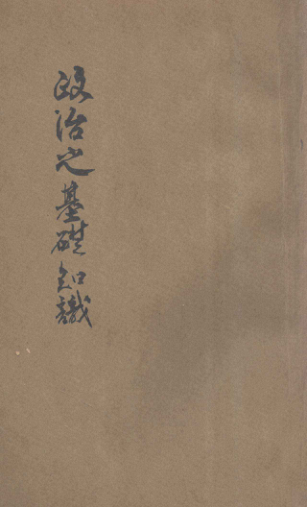 政治之基礎知識